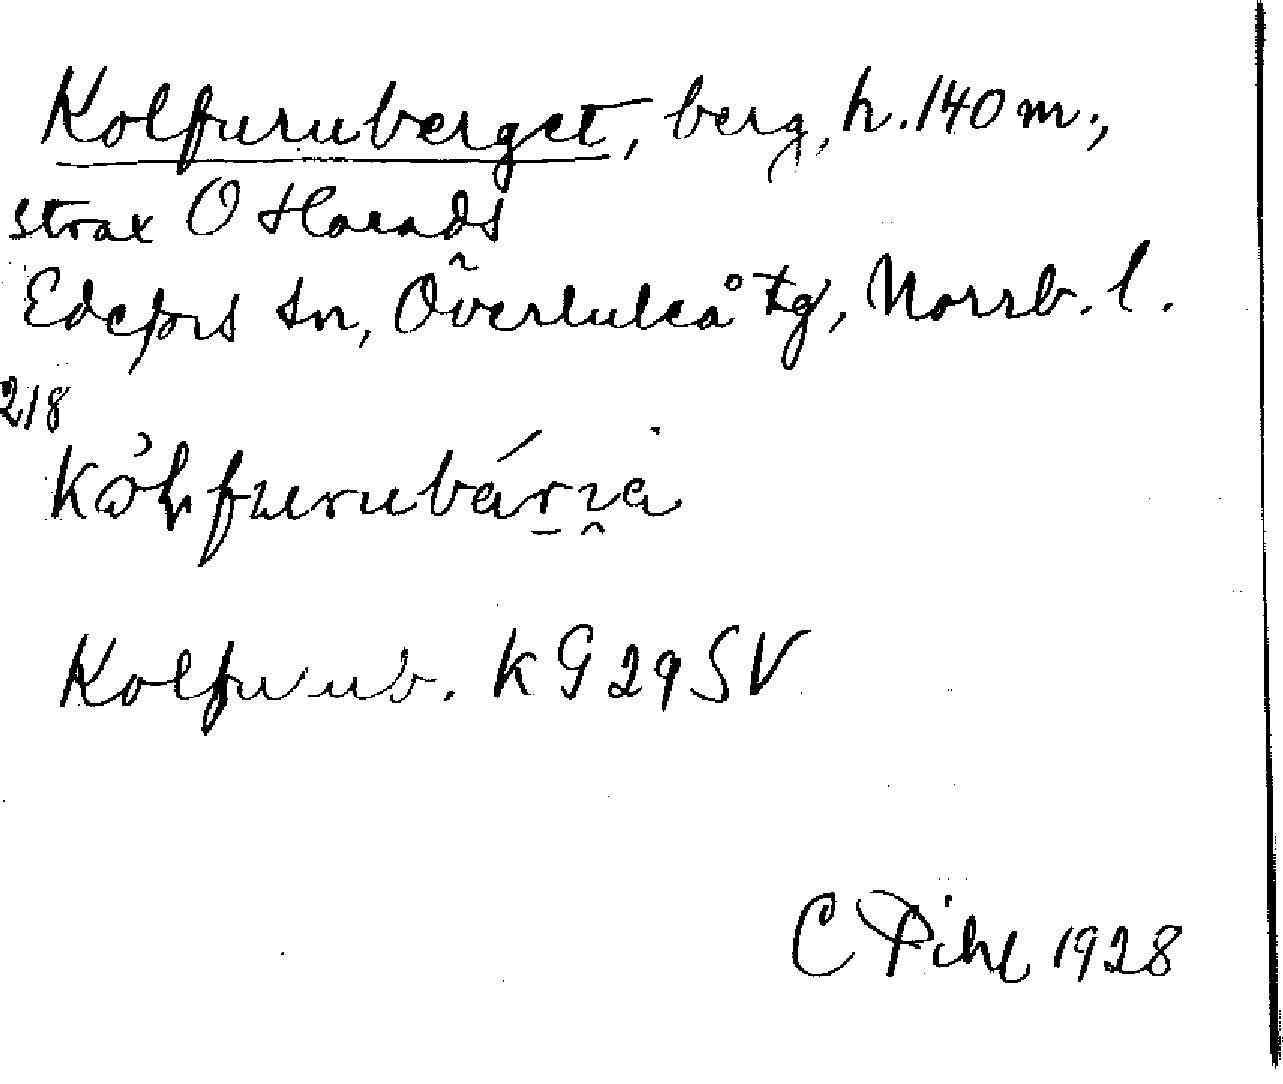 Kolfuruberget, berg, h. 140 m.,
strax O Harads
Edefors sn, Överluleå tg, Norrb. l.
218
Kolfurub. KG 29 SV
C Pihl 1928